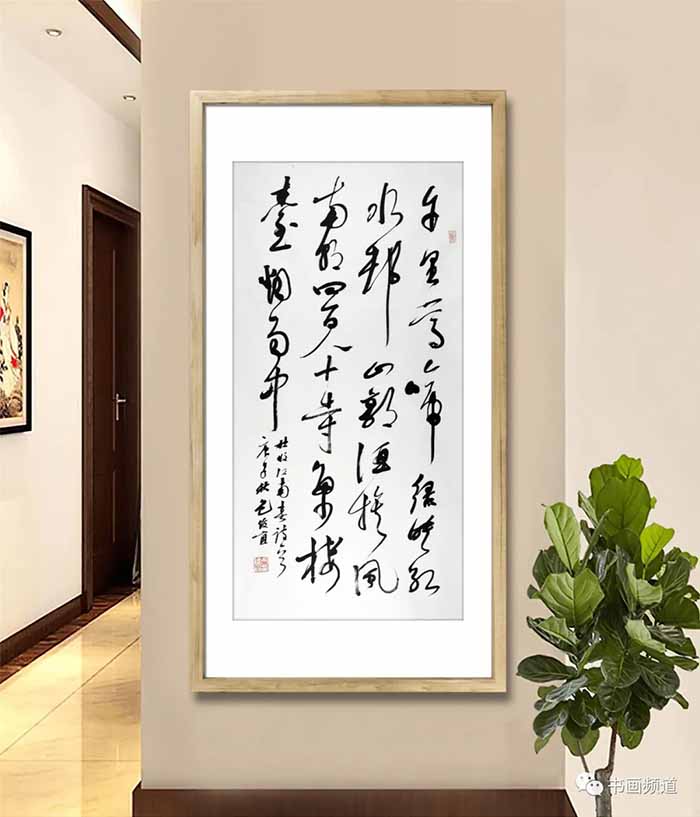 千里莺啼绿映红
水邨山郭酒旗风
南朝四百八十寺多少楼
臺烟雨中
杜牧江南春诗一首
庚子秋
书画频道